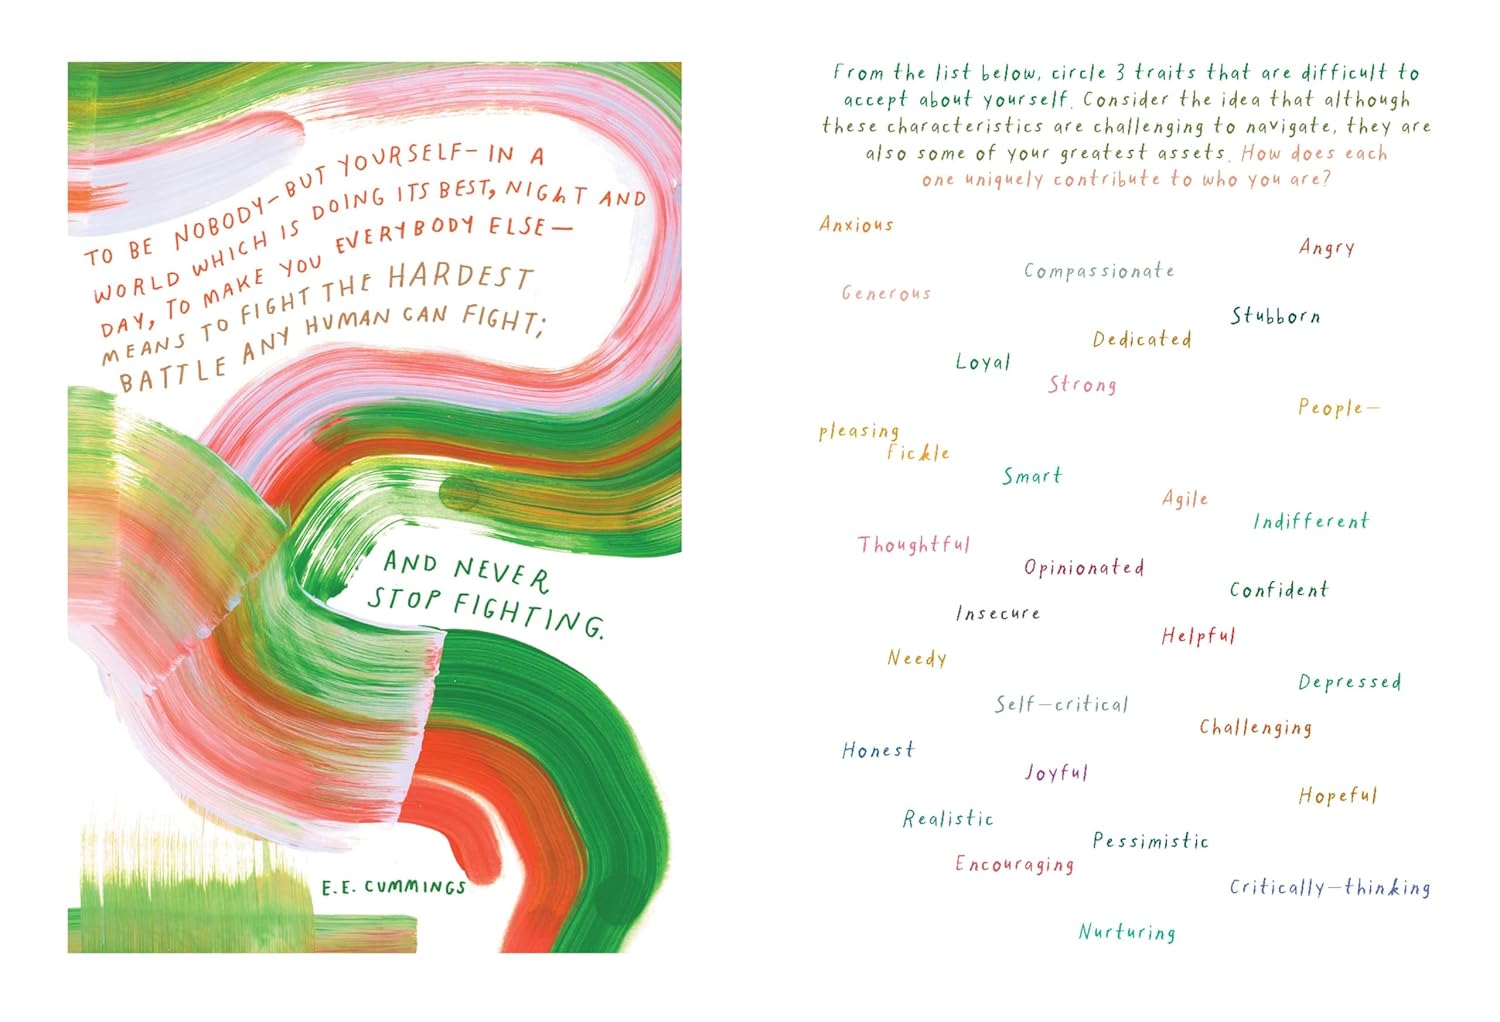 TO BE NOBODY—BUT YOURSELF—IN A
WORLD WHICH IS DOING ITS BEST, NIGHT AND
DAY, TO MAKE YOU EVERYBODY ELSE—
MEANS TO FIGHT THE HARDEST
BATTLE ANY HUMAN CAN FIGHT;
AND NEVER
STOP FIGHTING.
E.E. CUMMINGS
From the list below, circle 3 traits that are difficult to
accept about yourself. Consider the idea that although
these characteristics are challenging to navigate, they are
also some of your greatest assets. How does each
one uniquely contribute to who you are?
Anxious
Angry
Compassionate
Generous
Stubborn
Dedicated
Loyal
Strong
People—
pleasing
Fickle
Smart
Agile
Indifferent
Thoughtful
Opinionated
Confident
Insecure
Helpful
Needy
Depressed
Self—critical
Challenging
Honest
Joyful
Hopeful
Realistic
Pessimistic
Encouraging
Critically—thinking
Nurturing